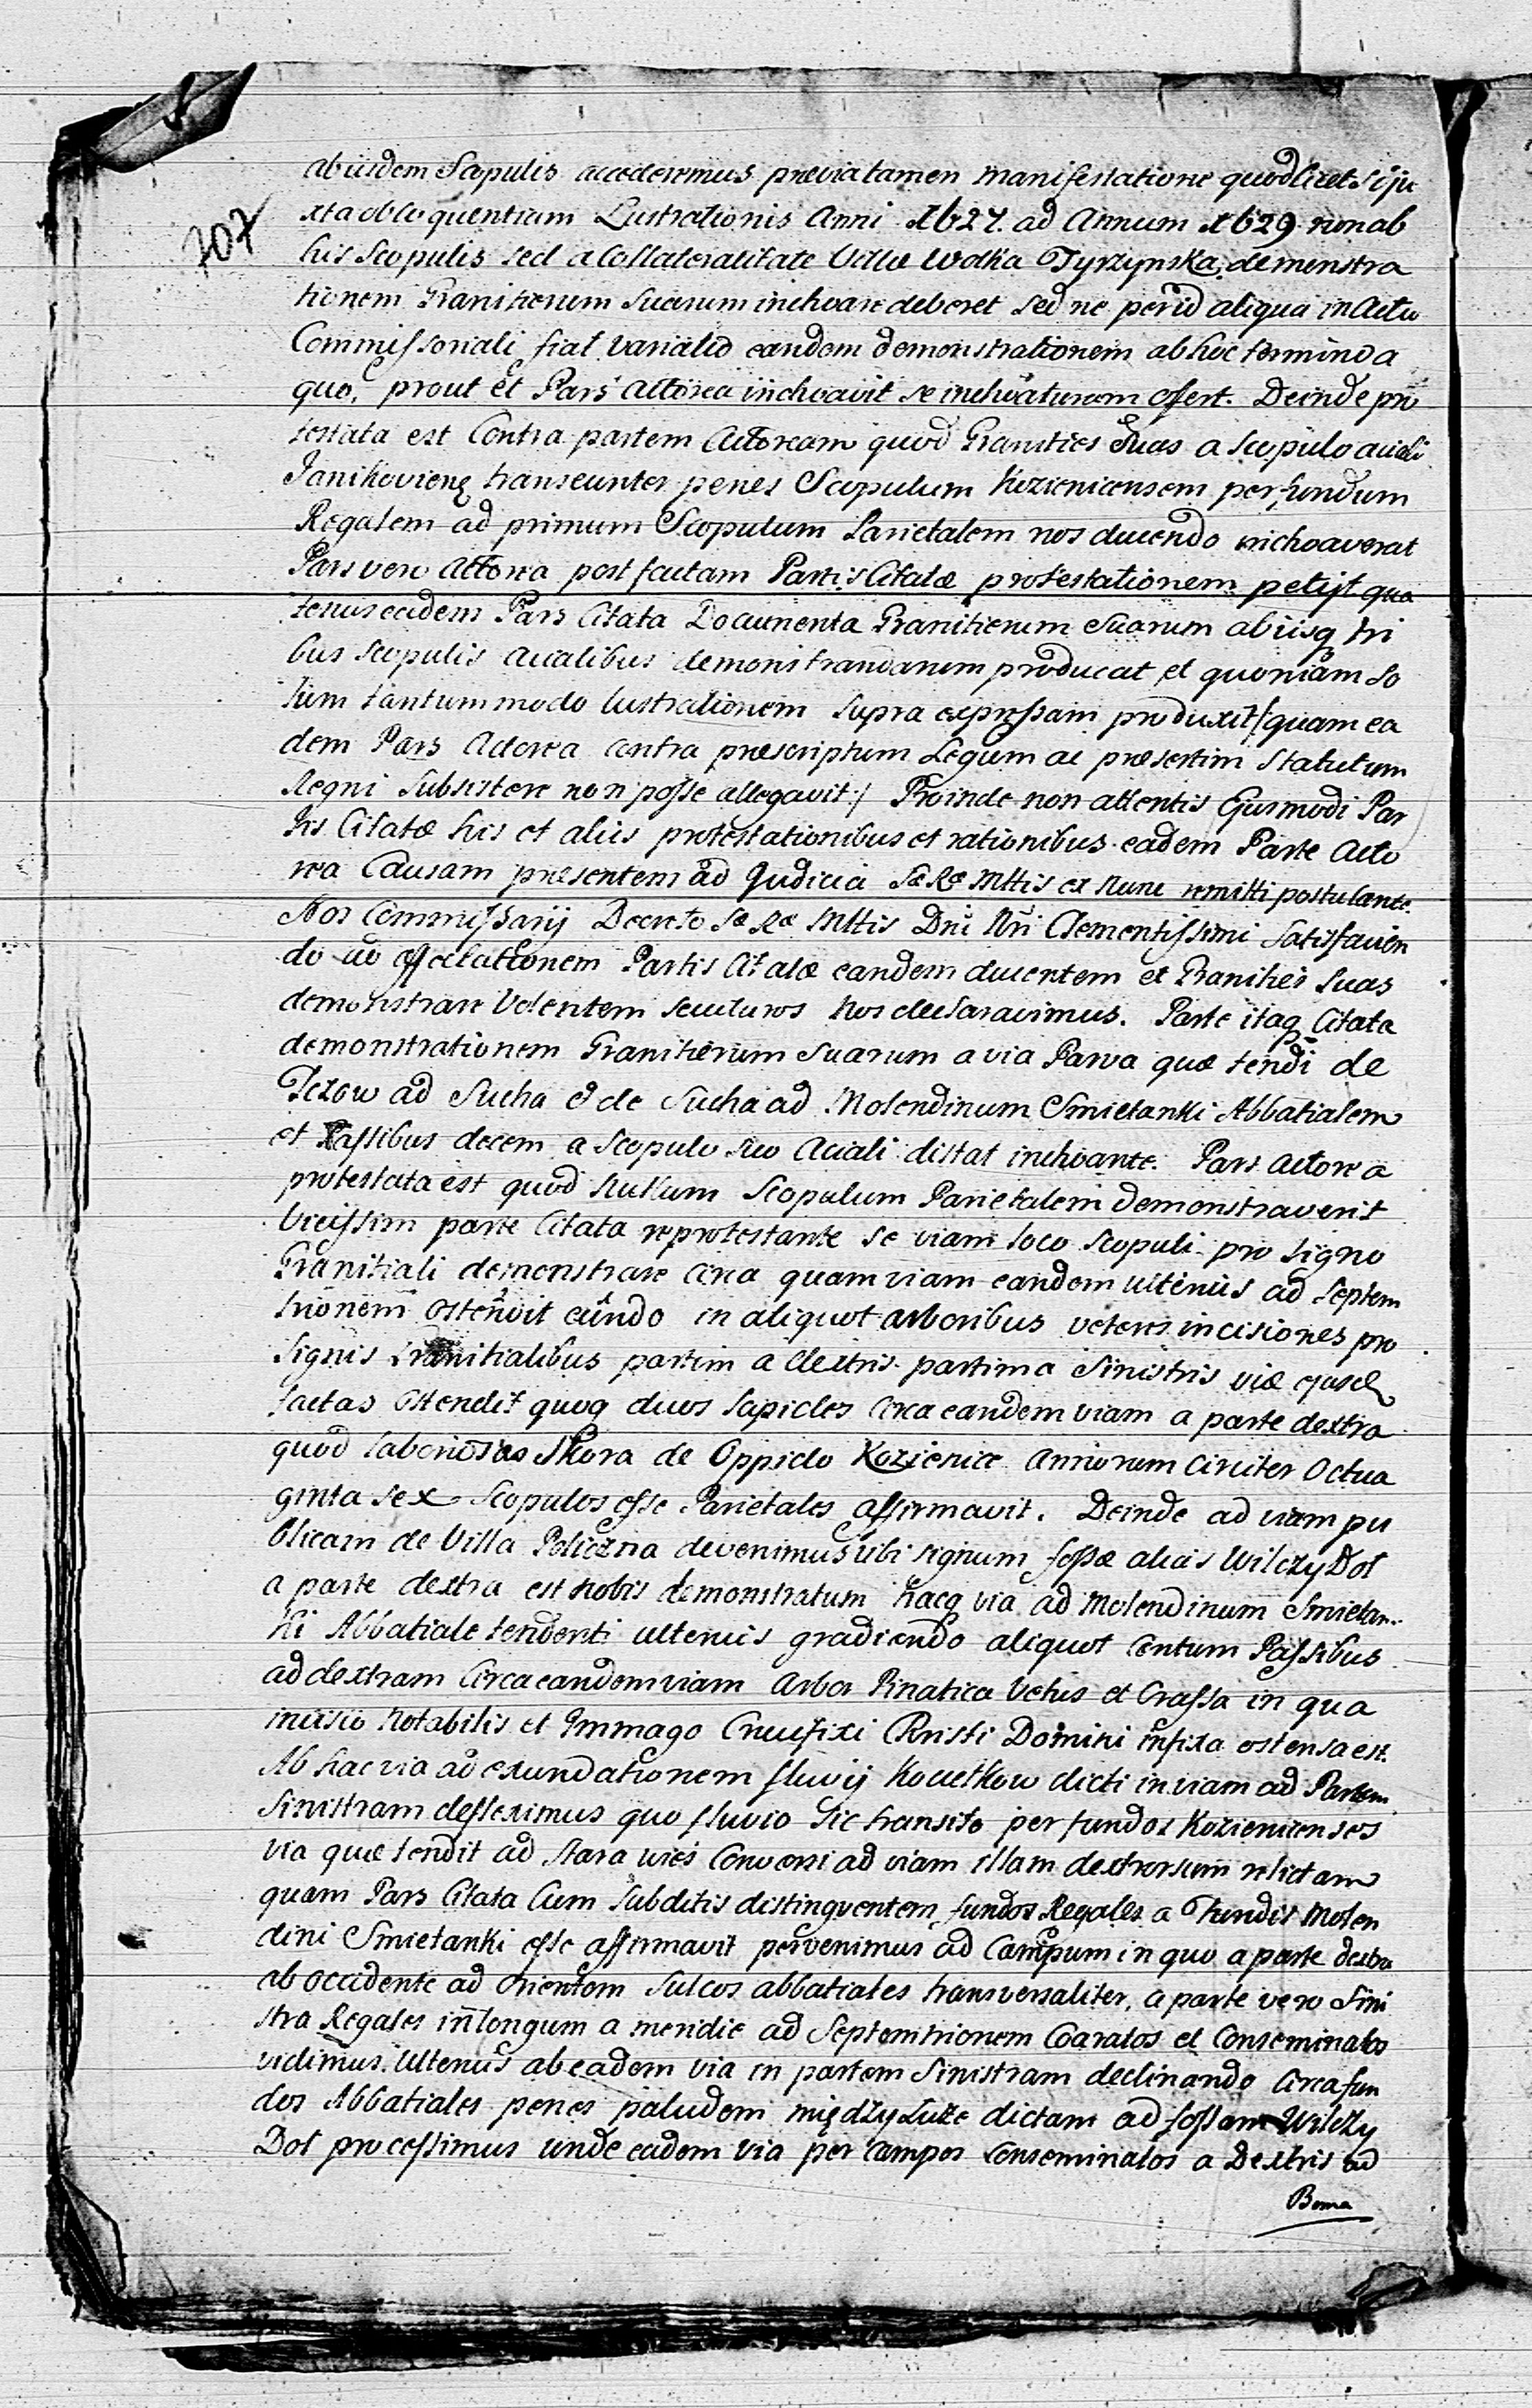 ab iisdem Scopulis accederemus prævia tamen manifestatione quod licet si ju
xta obloquentiam Lustrationis Anni 1627. ad Annum 1629. non ab
his Scopulis sed a Collateralitate Villæ Wolka Tyrzynska, demonstra
tionem Granitierum Suarum inchoare deberet sed ne per id aliqua in Actu
Commissoriali fiat variatio eandem demonstrationem ab hoc termino a
quo, prout et Pars Actorea inchoavit se inchoaturam offert. Deinde pro
testata est Contra partem Actoream quod Granities Suas a Scopulo aciali
Janikovienę transeunter penes Scopulum Kozienicensem per fundum
Regalem ad primum Scopulum Parietalem nos ducendo inchoaverat
Pars vero Actorea post factam Partis Citatæ protestationem petijt qua
tenus eadem Pars Citata Documenta Granitierum Suarum ab iisq tri
bus Scopulis Acialibus demonstrandarum producat, et quoniam so
lum tantummodo lustrationem supra expressam produxit /: quam ea
dem Pars Actorea contra præscriptum Legum ac præsertim Statutum
Regni subsistere non posse allegavit :/ Proinde non attentis Ejusmodi Par
tis Citatæ his et aliis protestationibus et rationibus eadem Parte Acto
rea Causam præsentem ad Judicia Sæ Ræ Mttis ex nunc remitti postulante.
Nos Commissarij Decreto Sæ Ræ Mttis Dni Nri Clementissimi Satisfacien
do ad affectationem Partis Citatæ eandem ducentem et Granities Suas
demonstrare Volentem secuturos Nos declaravimus. Parte itaq Citata
demonstrationem Granitierum Suarum a via Parva quæ tendi de
Jezow ad Sucha et de Sucha ad Molendinum Smietanki Abbatialem
et Passibus decem a Scopulo suo Aciali distat inchoante. Pars Actorea
protestata est quod nullum Scopulum Parietalem demonstraverit
Vicissim parte Citata reprotestante se viam loco Scopuli pro signo
Granitiali demonstrare circa quam viam eandem ulterius ad Septem
trionem ostendit eundo in aliquot arboribus veteres incisiones pro
signis Granitialibus partim a dextris partim a Sinistris viæ ejusd
factas ostendit quoq duos lapides circa eandem viam a parte dextra
quod laboriosus Skora de Oppido Kozienice annorum circiter Octua
ginta sex Scopulos esse Parietales affirmavit. Deinde ad viam pu
blicam de Villa Policzna devenimus ubi signum fossæ alias Wilczy Dol
a parte dextra est nobis demonstratum hacq via ad Molendinum Smietan-
ki Abbatiale tendenti ulterius gradiendo aliquot Centum Passibus
ad dextram Circa eandem viam Arbor Pinatica Vetus et Crassa in qua
incisio notabilis et Immago Crucifixi Christi Domini infixa ostensa est.
Ab hac via ad exundationem fluvij Kociełkow dicti in viam ad Partem
Sinistram defleximus quo fluvio sic transito per fundos Kozienicenses
via quæ tendit ad Stara wies Conversi ad viam illam dextrorsum relictam
quam Pars Citata Cum Subditis distinguentem fundos Regales a Fundis Molen
dini Smietanki esse affirmavit pervenimus ad Campum in quo a parte dextra
ab occidente ad orientem Sulcos abbatiales transversaliter, a parte vero Sini
stra Regales in longum a meridie ad Septemtrionem Coaratos et Conseminatos
vidimus. Ulterius ab eadem via in partem Sinistram declinando Circa fun
dos Abbatiales penes paludem między Luże dictam ad fossam Wilczy
Dol processimus unde eadem via per campos conseminatos a Dextris ad
Bona
707